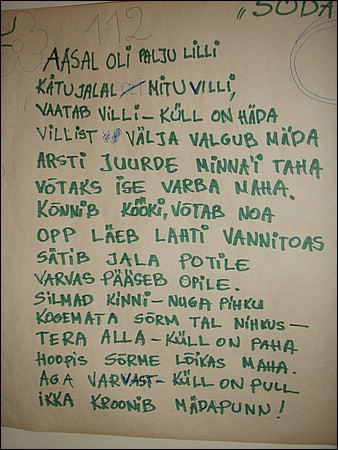 „SÕDA
112
AASAL OLI PALJU LILLI
KÄTUJALAL MITU VILLI,
VAATAB VILLI – KÜLL ON HÄDA
VILLIST VÄLJA VALGUB MÄDA
ARSTI JUURDE MINNA'I TAHA
VÕTAKS ISE VARBA MAHA.
KÕNNIB KÖÖKI, VÕTAB NOA
OPP LÄEB LAHTI VANNITOAS
SÄTIB JALA POTILE
VARVAS PÄÄSEB OPILE.
SILMAD KINNI – NUGA PIHKU
KOGEMATA SÕRM TAL NIHKUS –
TERA ALLA – KÜLL ON PAHA
HOOPIS SÕRME LÕIKAS MAHA.
AGA VARVAST – KÜLL ON PULL
IKKA KROONIB MÄDAPUNN!